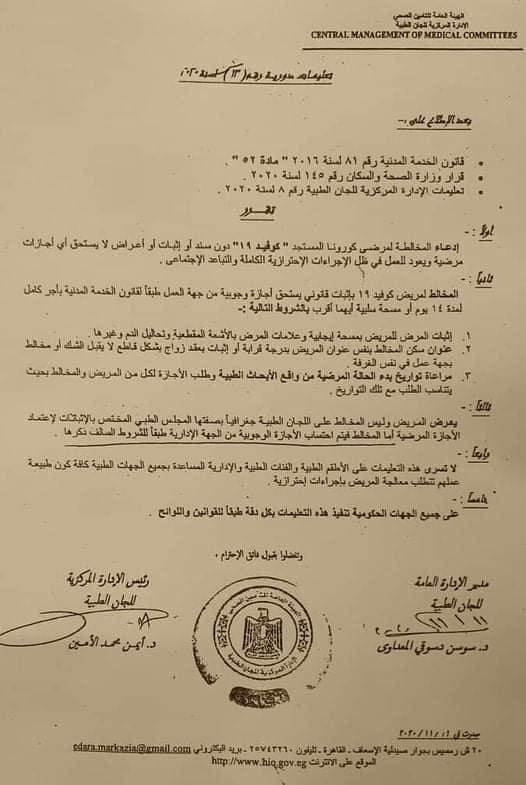 الهيئة العامة للتأمين الصحي
الإدارة المركزية للجان الطبية
CENTRAL MANAGEMENT OF MEDICAL COMMITTEES
تعليمات دورية رقم (١٣) لسنة ٢٠٢٠
بعد الإطلاع على :-
قانون الخدمة المدنية رقم ٨١ لسنة ٢٠١٦ " مادة ٥٢ " .
قرار وزارة الصحة والسكان رقم ١٤٥ لسنة ٢٠٢٠ .
تعليمات الإدارة المركزية للجان الطبية رقم ٨ لسنة ٢٠٢٠ .
تقرر
أولاً : -
إدعاء المخالطة لمرضى كورونا المستجد " كوفيد ١٩ " دون سند أو إثبات أو أعراض لا يستحق أي أجازات
مرضية ويعود للعمل في ظل الإجراءات الإحترازية الكاملة والتباعد الإجتماعى .
ثانياً : -
المخالط لمريض كوفيد ١٩ بإثبات قانوني يستحق أجازة وجوبية من جهة العمل طبقاً لقانون الخدمة المدنية بأجر كامل
لمدة ١٤ يوم أو مسحة سلبية أيهما أقرب بالشروط التالية :-
١. إثبات المرض للمريض بمسحة إيجابية وعلامات المرض بالأشعة المقطعية وتحاليل الدم وغيرها .
٢. عنوان سكن المخالط بنفس عنوان المريض بدرجة قرابة أو إثبات بعقد زواج بشكل قاطع لا يقبل الشك أو مخالط
بجهة عمل في نفس الغرفة .
٣. مراعاة تواريخ بدء الحالة المرضية من واقع الأبحاث الطبية وطلب الأجازة لكل من المريض والمخالط بحيث
يتناسب الطلب مع تلك التواريخ .
ثالثاً : -
يعرض المريض وليس المخالط على اللجان الطبية جغرافياً بصفتها المجلس الطبي المختص بالإثباتات لإعتماد
الأجازة المرضية أما المخالط فيتم احتساب الأجازة الوجوبية من الجهة الإدارية طبقاً للشروط السالف ذكرها .
رابعاً : -
لا تسرى هذه التعليمات على الأطقم الطبية والفئات الطبية والإدارية المساعدة بجميع الجهات الطبية كافة كون طبيعة
عملهم تتطلب معالجة المريض بإجراءات إحترازية .
خامساً : -
على جميع الجهات الحكومية تنفيذ هذه التعليمات بكل دقة طبقاً للقوانين واللوائح .
وتفضلوا بقبول فائق الإحترام ،
مدير الإدارة العامة
للجان الطبية
د. سوسن دسوقي المعداوى
رئيس الإدارة المركزية
للجان الطبية
د. أيمن محمد الأمين
صدرت في ١ / ١١ / ٢٠٢٠
٢٠ ش رمسيس بجوار صيدلية الإسعاف - القاهرة - تليفون ٢٥٧٤٣٢٦٠ - بريد اليكتروني edara.markazia@gmail.com
الموقع على الانترنت http://www.hio.gov.eg